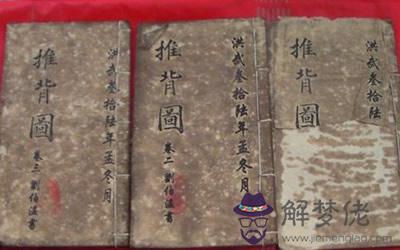 洪武叁拾陸年孟冬月
推背圖
卷三劉伯溫書
洪武叁拾陸年孟冬月
推背圖
卷二劉伯溫書
洪武叁拾陸
推背圖
解梦佬
www.jiemenglao.com